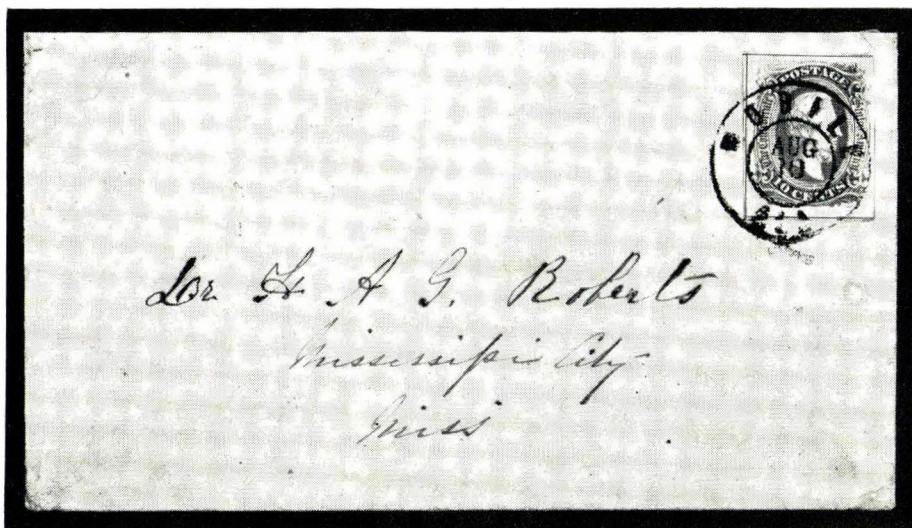 POSTAGE
MOBILE
AUG
TEN CENTS
ALA
Dr H A G. Roberts
Mississippi City
Miss